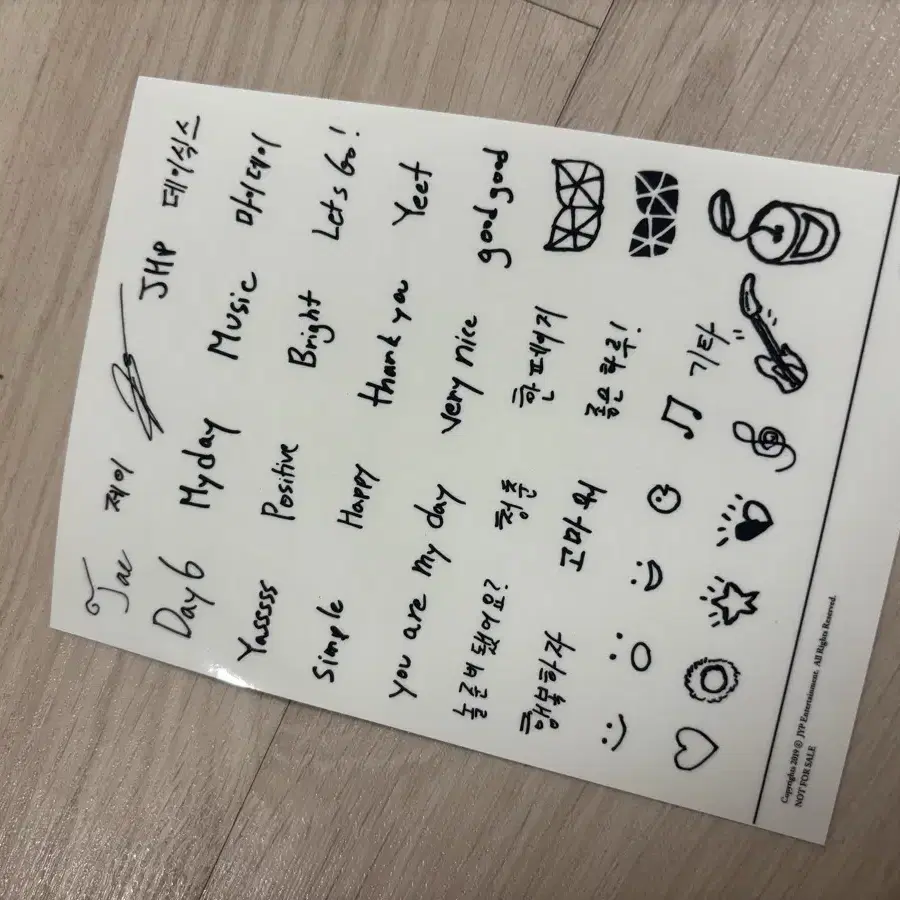 Jae 제이 JHP 데이식스
Day6 Myday Music 마이데이
Yasssss Positive Bright Let's Go!
Simple Happy thank you Yeet
you are my day very nice good good
놀 준비 됐어요? 청춘 한 페이지
행복하자 고마워 좋은 하루!
기타
Copyrights 2019 ⓒ JYP Entertainment. All Rights Reserved.
NOT FOR SALE